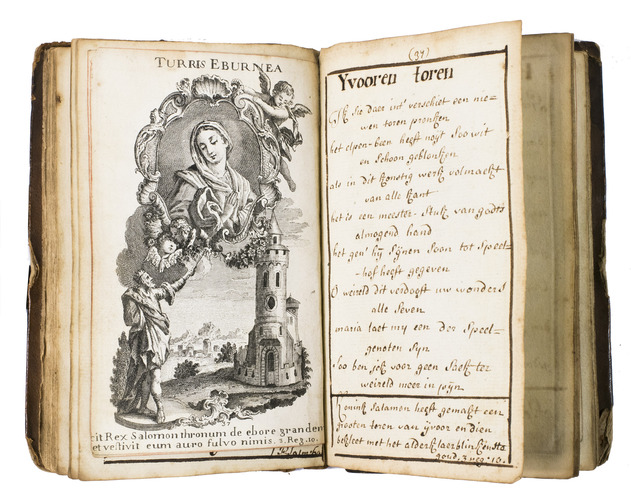 TURRIS EBURNEA
37
it Rex Salomon thronum de ebore granden
et vestivit eum auro fulvo nimis. 2. Reg. 10.
(37)
Yvooren toren
Ik sie daer int verschiet een nie=
wen toren pronken
het elpen-been heeft noyt soo wit
en schoon geblonken
als in dit konstig werk volmaekt
van alle kant
het is een meester-stuk van godts
almogend hand
het gen' hy synen soon tot speel=
hof heeft gegeven
O weireld dit verdooft uw wonders
alle seven
maria laet my een der speel=
genoten syn
soo ben ick voor geen siekte ter
weireld meer in pyn
konink salamon heeft gemakt een
grooten toren van yvoor en dien
bekleet met het alderk
goud. 3 reg: 10.